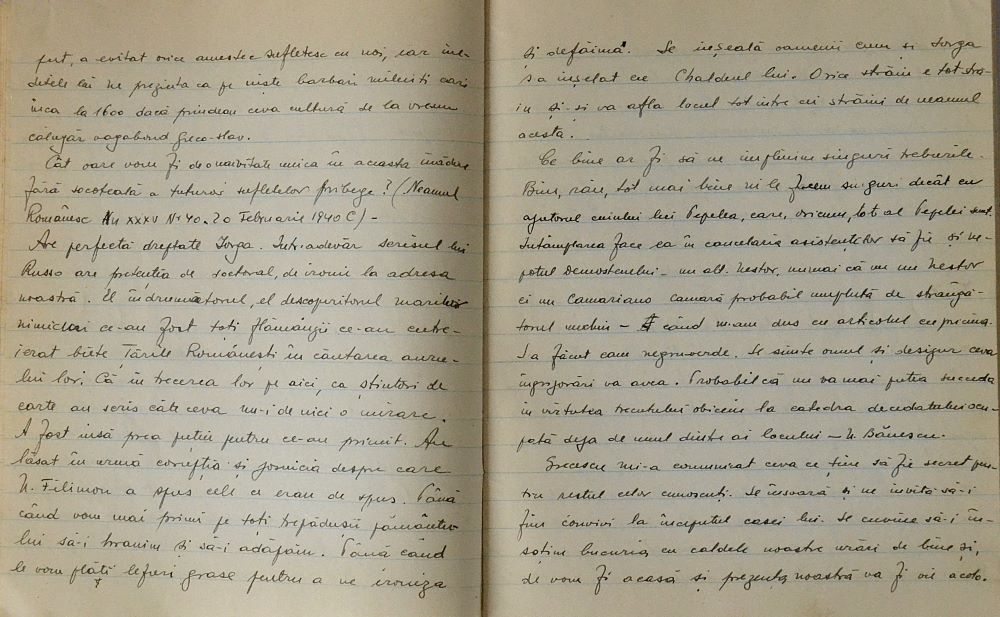 fert, a evitat orice amestec sufletesc cu noi, iar
ne prezinta ca pe niste barbari miluiti cari
inca la 1600 dacă prindeau ceva cultură de la vreun
călugăr vagabond Greco-slav.
Cât oare vom fi de o naivitate unica în aceasta
fără socoteală a tuturor sufletelor pribege? (Neamul
Românesc An XXXV Nr 40. 20 Februarie 1940 C) -
Are perfectă dreptate Iorga. Intr-adevăr scrisul lui
Russo are pretenția de doctoral, de ironii la adresa
noastră. El îndrumătorul, el descoperitorul marilor
nimicuri ce-au fost toți flămânzii ce-au cutre-
ierat biete Țările Românești în căutarea auru-
lui lor. Că în trecerea lor pe aici, ca știutori de
carte au scris câte ceva nu-i de nici o mirare.
A fost insă prea puțin pentru ce-au primit. Au
lăsat în urmă corupția și josnicia despre care
N. Filimon a spus cele ce erau de spus. Până
când vom mai primi pe toți trepădușii pământu-
lui să-i hranim și să-i adăpăm. Până când
le vom plăti lefuri grase pentru a ne ironiza
și defăima. Se inșeală oamenii cum și Iorga
s-a inșelat cu Chaldeul lui. Orice străin e tot stră-
in și-si va afla locul tot intre cei străini de neamul
acesta.
Ce bine ar fi să ne implinim singuri treburile.
Bine, rău, tot mai bine ni le facem singuri decât cu
ajutorul cuiului lui Pepelea, care, oricum, tot al Pepelei sunt.
Intâmplarea face ca în cancelaria asistenților să fie și ne-
potul Demostenului - un alt Nestor, numai că nu un Nestor
ci un Camariano camară probabil umplută de strângă-
torul unchiu - când m-am dus cu articolul cu pricina.
S-a făcut cam negru-verde. Se simte omul și desigur ceva
îngrijorări va avea. Probabil că nu va mai putea succeda
in virtutea trecutului obiceiu la catedra decedatului ocu-
pată deja de unul dintre ai locului - N. Bănescu.
Grecescu mi-a comunicat ceva ce ține să fie secret pen-
tru restul celor cunoscuți. Se însoară și ne invită să-i
fim convivi la începutul casei lui. Se cuvine să-i în-
soțim bucuria cu caldele noastre urări de bine și,
de vom fi acasă și prezența noastră va fi vie acolo.